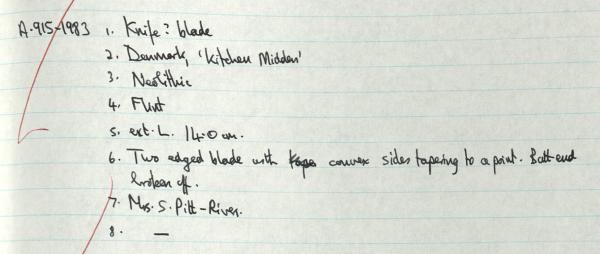 A.915-1983 1. Knife? blade
2. Denmark, 'Kitchen Midden'
3. Neolithic
4. Flint
5. ext. L. 14.0 cm.
6. Two edged blade with convex sides tapering to a point. Butt-end
broken off.
7. Mrs. S. Pitt-Rivers.
8. —